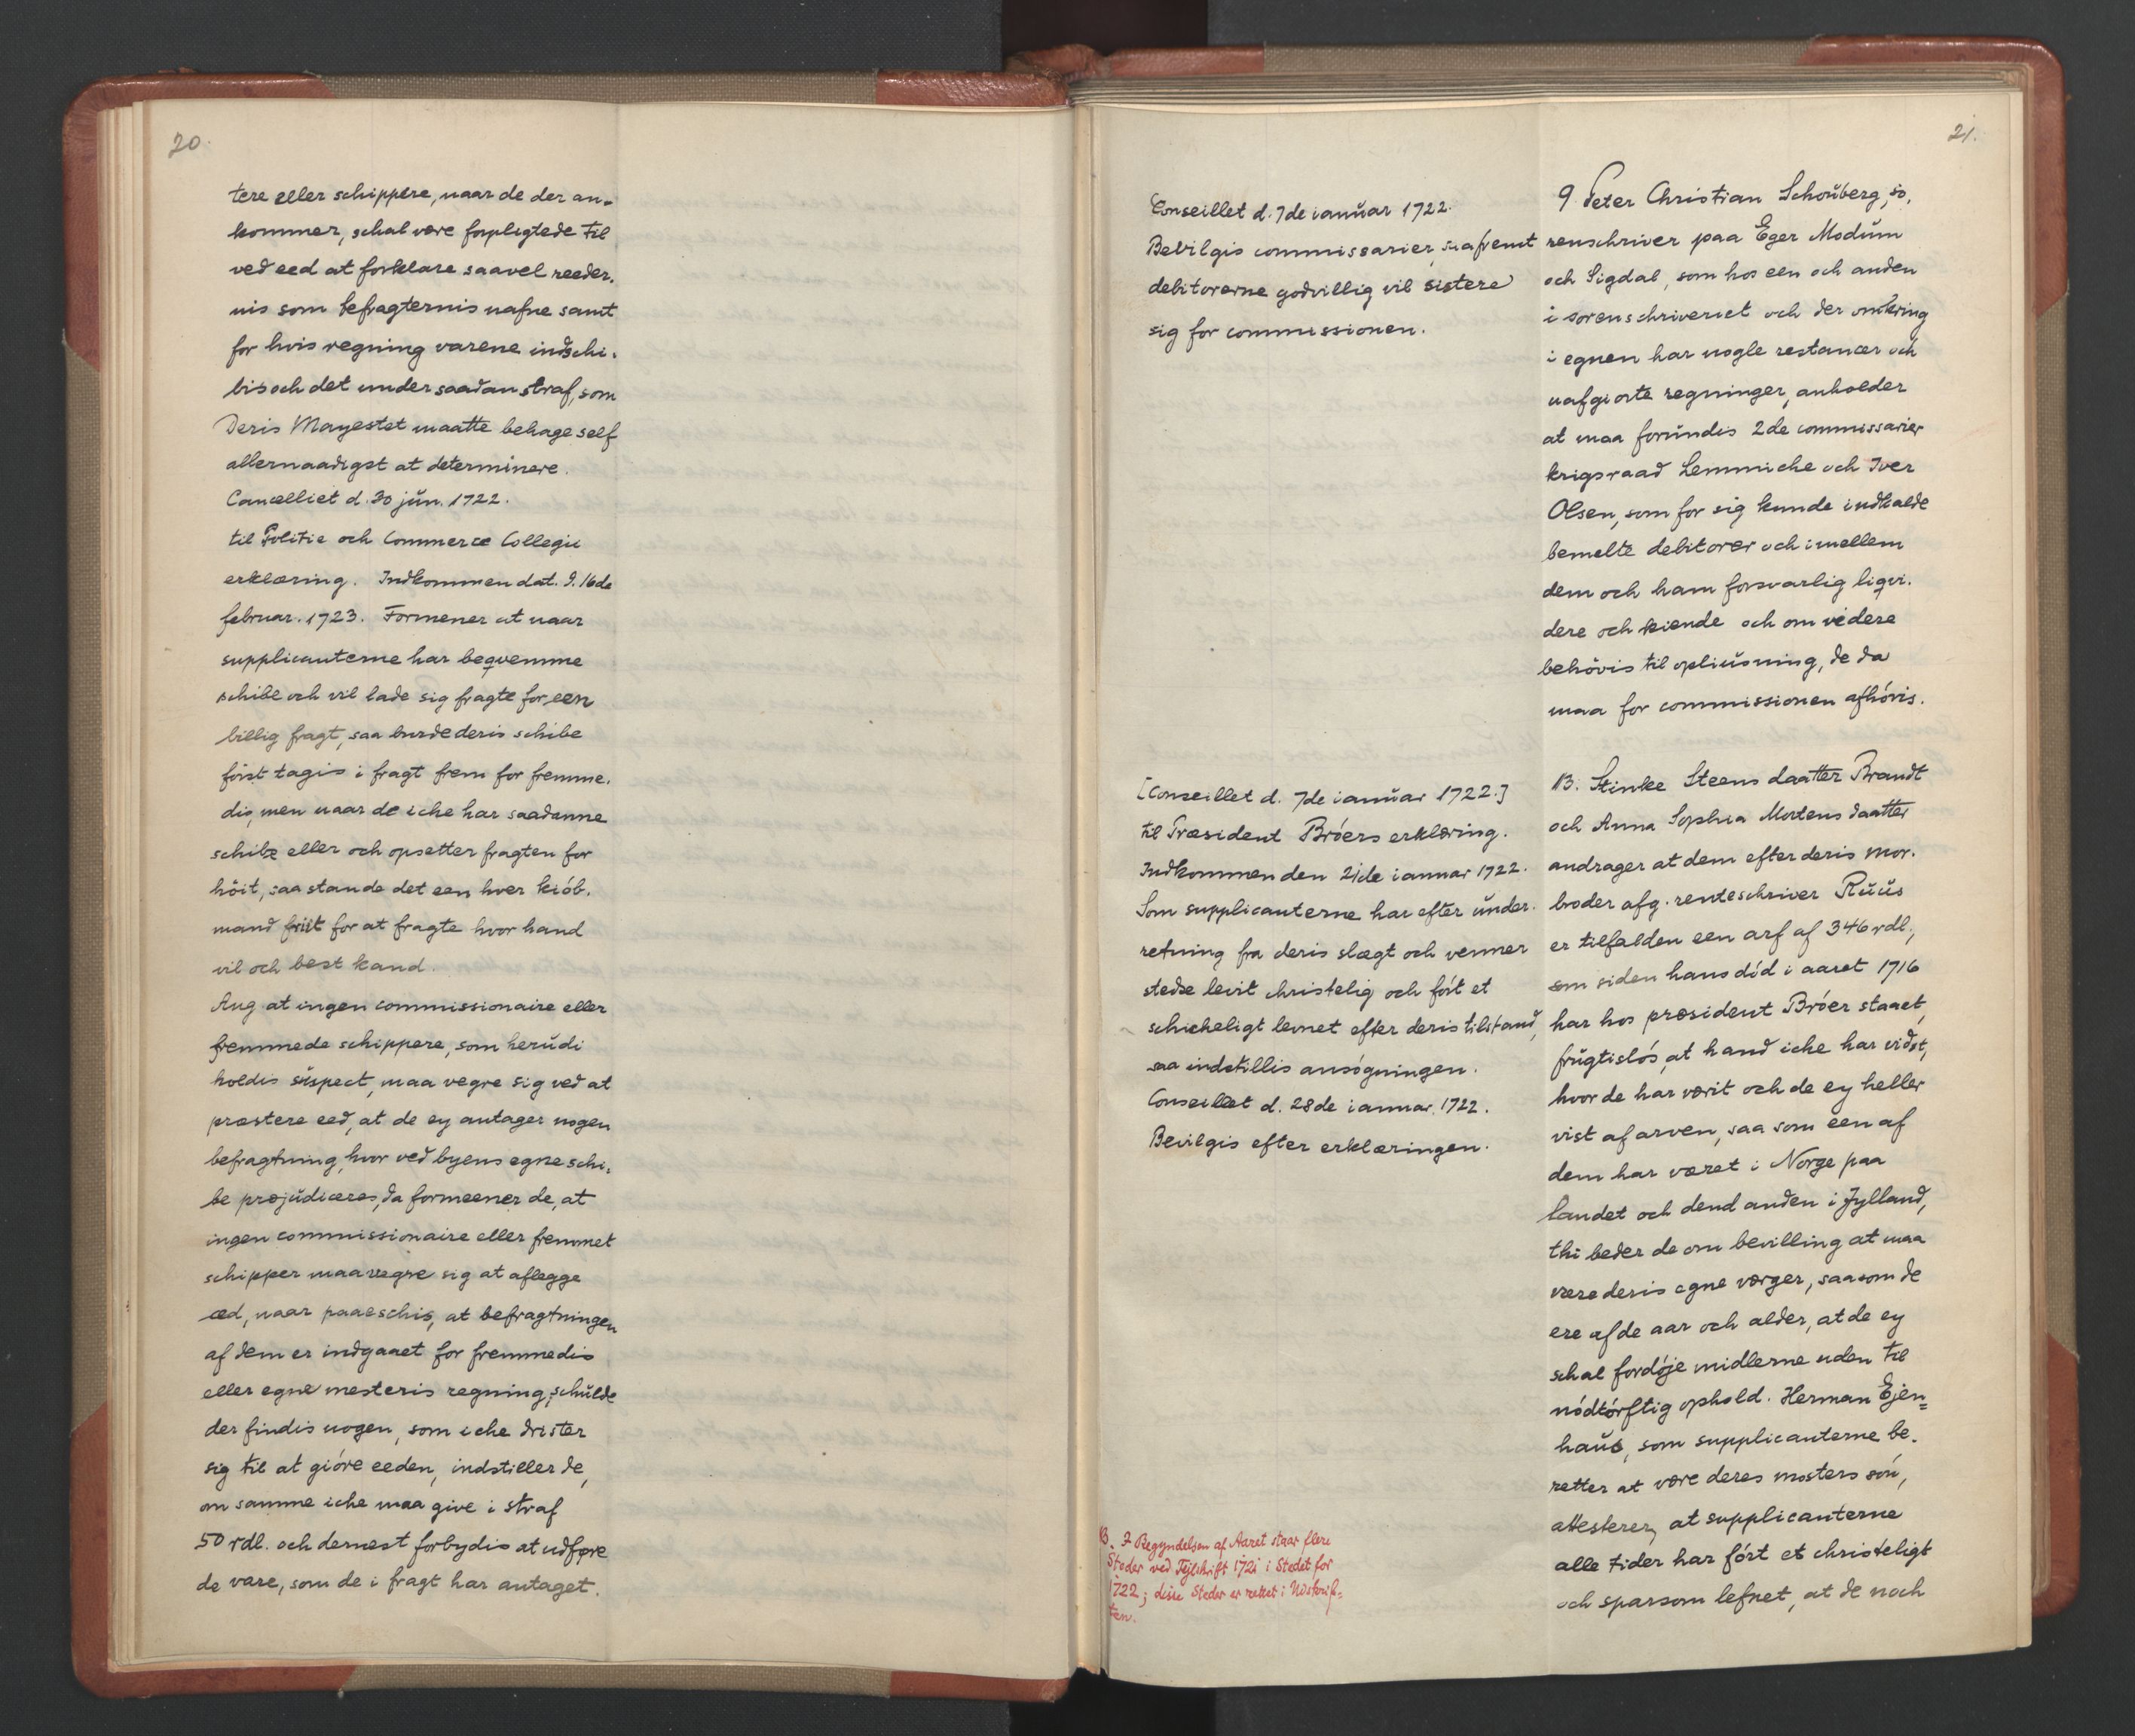 20.
tere eller schippere, naar de der an-
kommer, schal være forpligtede til
ved eed at forklare saavel reeder.
nis som befragternis nafne samt
for hvis regning varene indschi.
bis och det under saadan straf, som
Deris Mayestet maatte behage self
allernaadigst at determinere.
Cancelliet d. 30 jŭn. 1722.
til Politie och Commerce Collegii
erklæring. Indkommen dat. d. 16de
februar. 1723. Formener at naar
supplicanterne har beqvemme
schibe och vil lade sig fragte for een
billig fragt, saa burde deris schibe
først tagis i fragt frem for fremme.
dis, men naar de iche har saadanne
schibe eller och opsetter fragten for
höit, saa stande det een hver kiób.
mand friit for at fragte hvor hand
vil och best kand.
Ang at ingen commissionaire eller
fremmede schippere, som herŭdi
holdis sŭspect, maa vegre sig ved at
præstere eed, at de ey antager nogen
befragtning, hvor ved byens egne schi.
be præjŭdiceres, da formeener de, at
ingen commissionaire eller fremmet
schipper maa vegre sig at aflegge
æd, naar paaeschis, at befragtningen
af dem er indgaaet for fremmedis
eller egne mesteris regning, schŭlde
der findis nogen, som iche drister
sig til at gióre eeden, indstiller de,
om samme iche maa give i straf
50 rdl. och dernest forbydis at udføre
de vare, som de i fragt har antaget.
21.
Conseillet d. 7de ianŭar 1722.
Bevilgis commissarier, saafremt
debitorerne godvillig vil sistere
sig for commissionen.
[Conseillet d. 7de ianŭar 1722.]
til Præsident Bróers erklæring.
Indkommen den 21de ianuar 1722.
Som supplicanterne har efter ŭnder.
retning fra deris slægt och venner
stedse levit christelig och fórt et
schickeligt levnet efter deris tilstand,
saa indstillis ansógningen.
Conseillet d. 28de ianuar. 1722.
Bevilgis efter erklæringen.
B. I Begyndelsen af Aaret staar flere
Steder ved Fejlskrift 1721 i Stedet for
1722; disse Steder er rettet i Udskrif=
ten.
9 Peter Christian Schoŭberg, so,
renschriver paa Eger Modŭm
och Sigdal, som hos een och anden
i sorenschriveriet och der omkring
i egnen har nogle restancer och
uafgiorte regninger, anholder
at maa forŭndis 2de commissarier
krigsraad Lemmiche och Iver
Olsen, som for sig kunde indkalde
bemelte debitorer och imellem
dem och ham forsvarlig liqvi.
dere och kiende och om videre
behövis til opliŭsning, de da
maa for commissionen afhóris.
13. Stinke Steens daatter Brandt
och Anna Sophia Mortens daatter
andrager at dem efter deris mor.
broder afg. renteschriver Rŭŭs
er tilfalden een arf af 346 rdl.,
som siden hans död i aaret 1716
har hos præsident Bróer staaet,
frŭgtislós, at hand iche har vidst,
hvor de har værit och de ey heller
vist af arven, saa som een af
dem har været i Norge paa
landet och dend anden i Jylland,
thi beder de om bevilling at maa
være deris egne værger, saasom de
ere af de aar och alder, at de ey
schal fordóje midlerne uden til
nódtórftig ophold. Herman Ejen=
haŭs, som supplicanterne be.
retter at være deres mosters són,
attesterer, at supplicanterne
alle tider har fórt et christeligt
och sparsom lefnet, at de noch